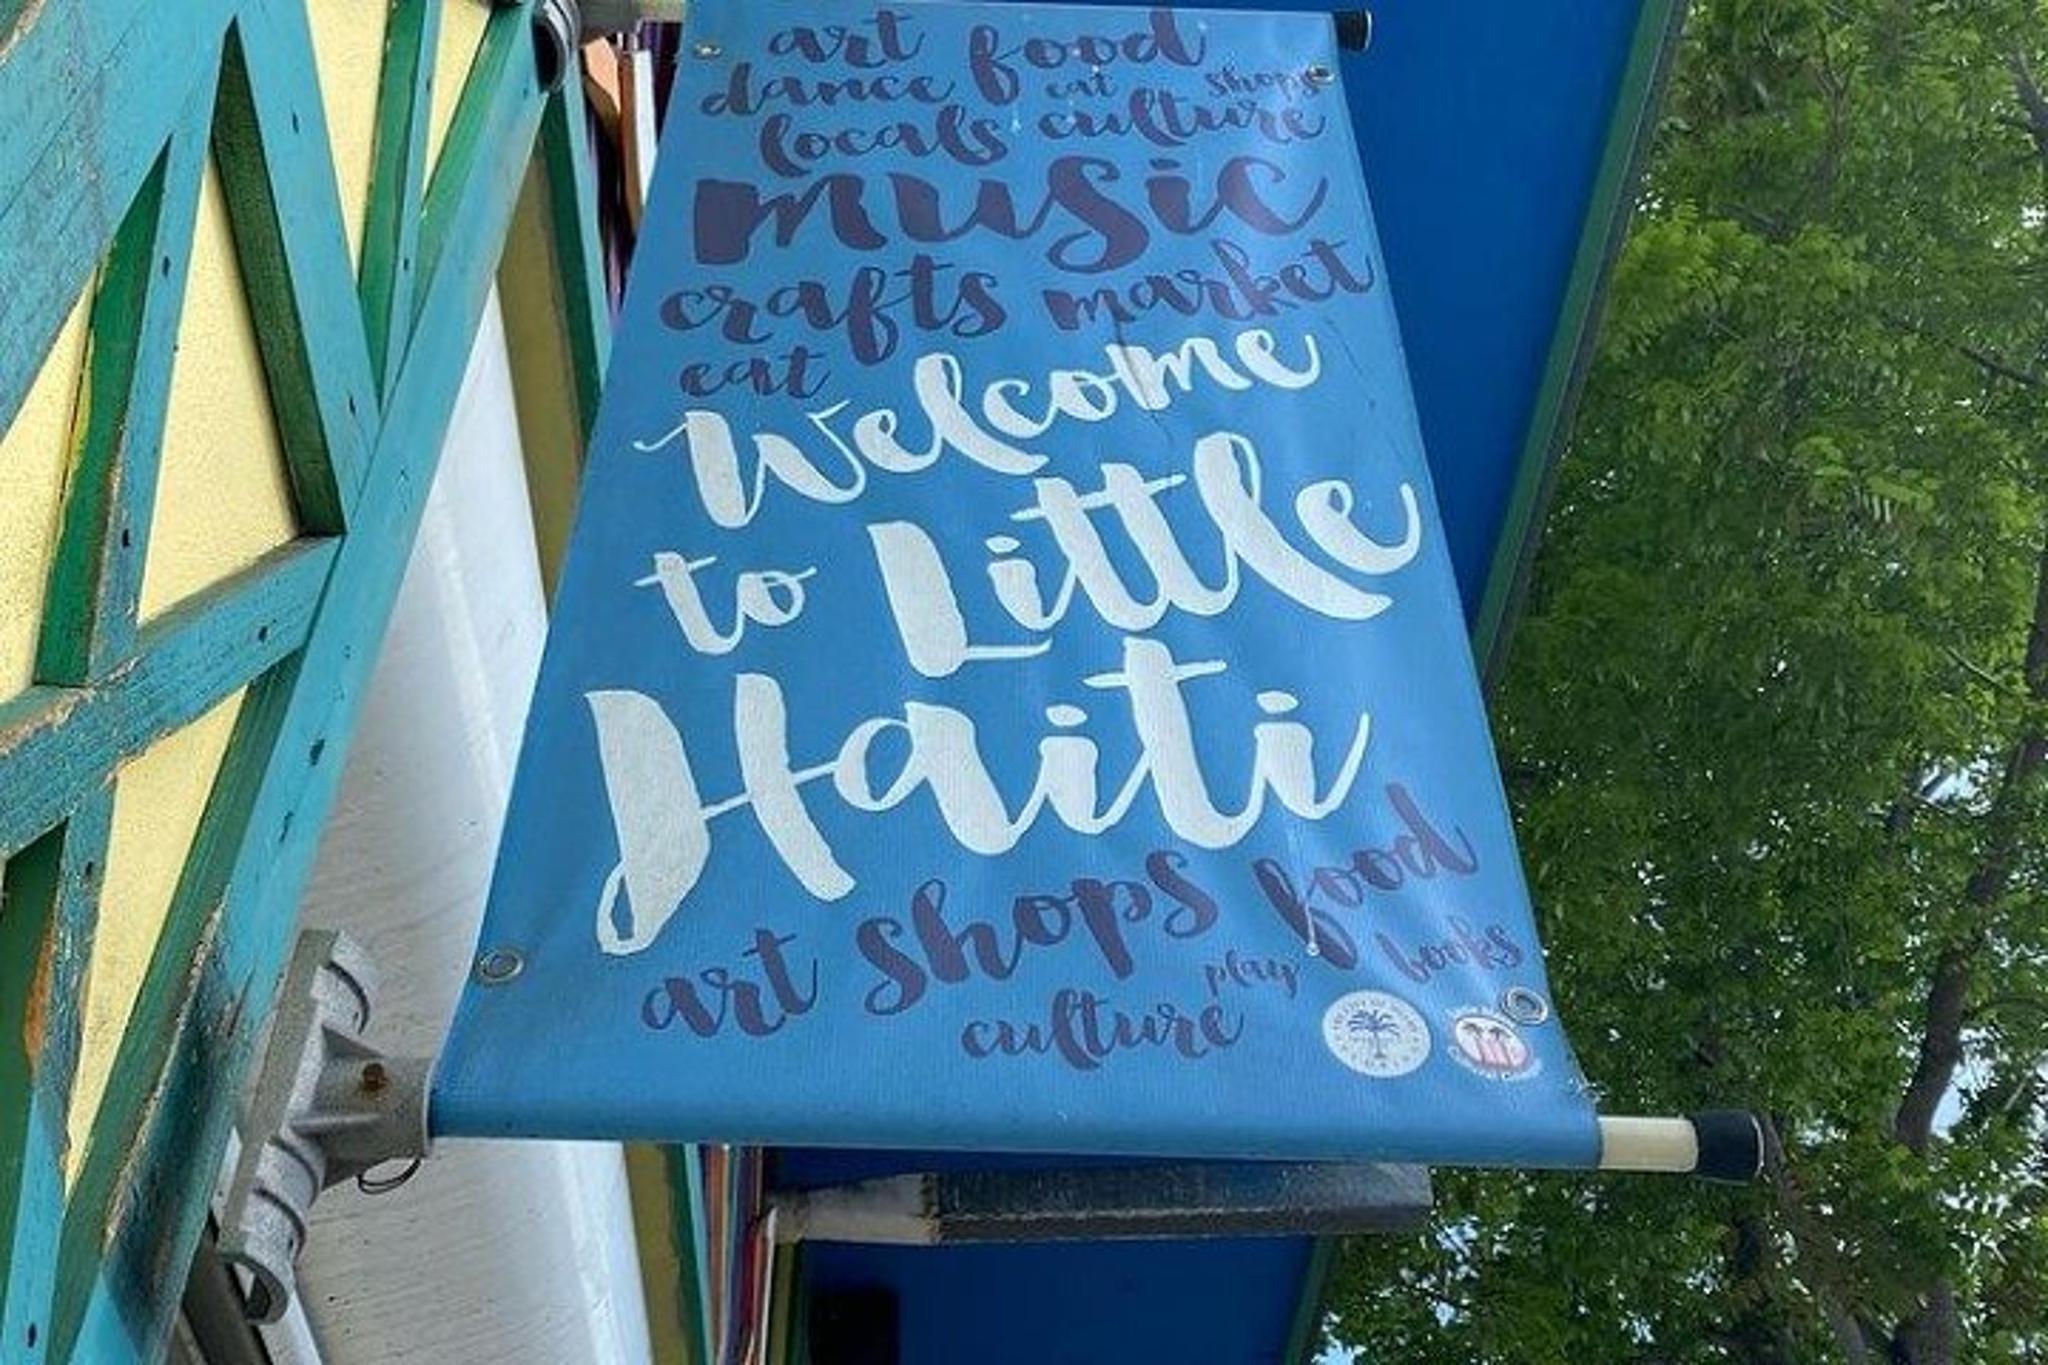 art food
dance eat shops
locals culture
music
crafts market
eat Welcome
to Little
Haiti
art shops food
culture play books